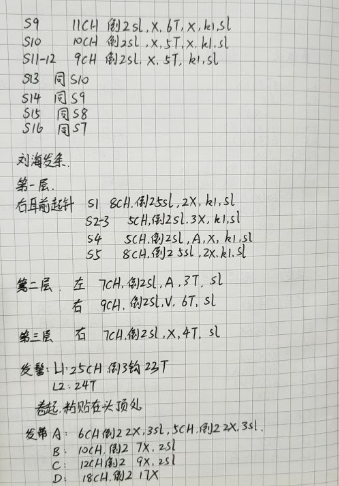 S9 11CH 倒2sl,X,6T,X,k1,sl
S10 10CH 倒2sl,X,5T,X,k1,sl
S11-12 9CH 倒2sl.X,5T,k1,sl
S13 同S10
S14 同S9
S15 同S8
S16 同S7
刘海发条.
第一层.
右耳前起针 S1 8CH.倒25sl,2X,k1,sl
S2-3 5CH,倒2sl.3X,k1,sl
S4 5CH.倒2sl,A,X,k1,sl
S5 8CH.倒25sl,2X.k1.sl
第二层. 左 7CH.倒2sl,A,3T,sl
右 9CH.倒2sl,V.6T,sl
第三层 右 7CH.倒2sl,X,4T,sl
发髻:L1:25CH.倒3钩23T
L2:24T
卷起.粘贴在头顶处
发带A:6CH倒22X,3sl,5CH.倒22X,3sl.
B:10CH.倒2 7X,2sl
C:12CH倒2 9X.2sl
D:18CH.倒2 17X